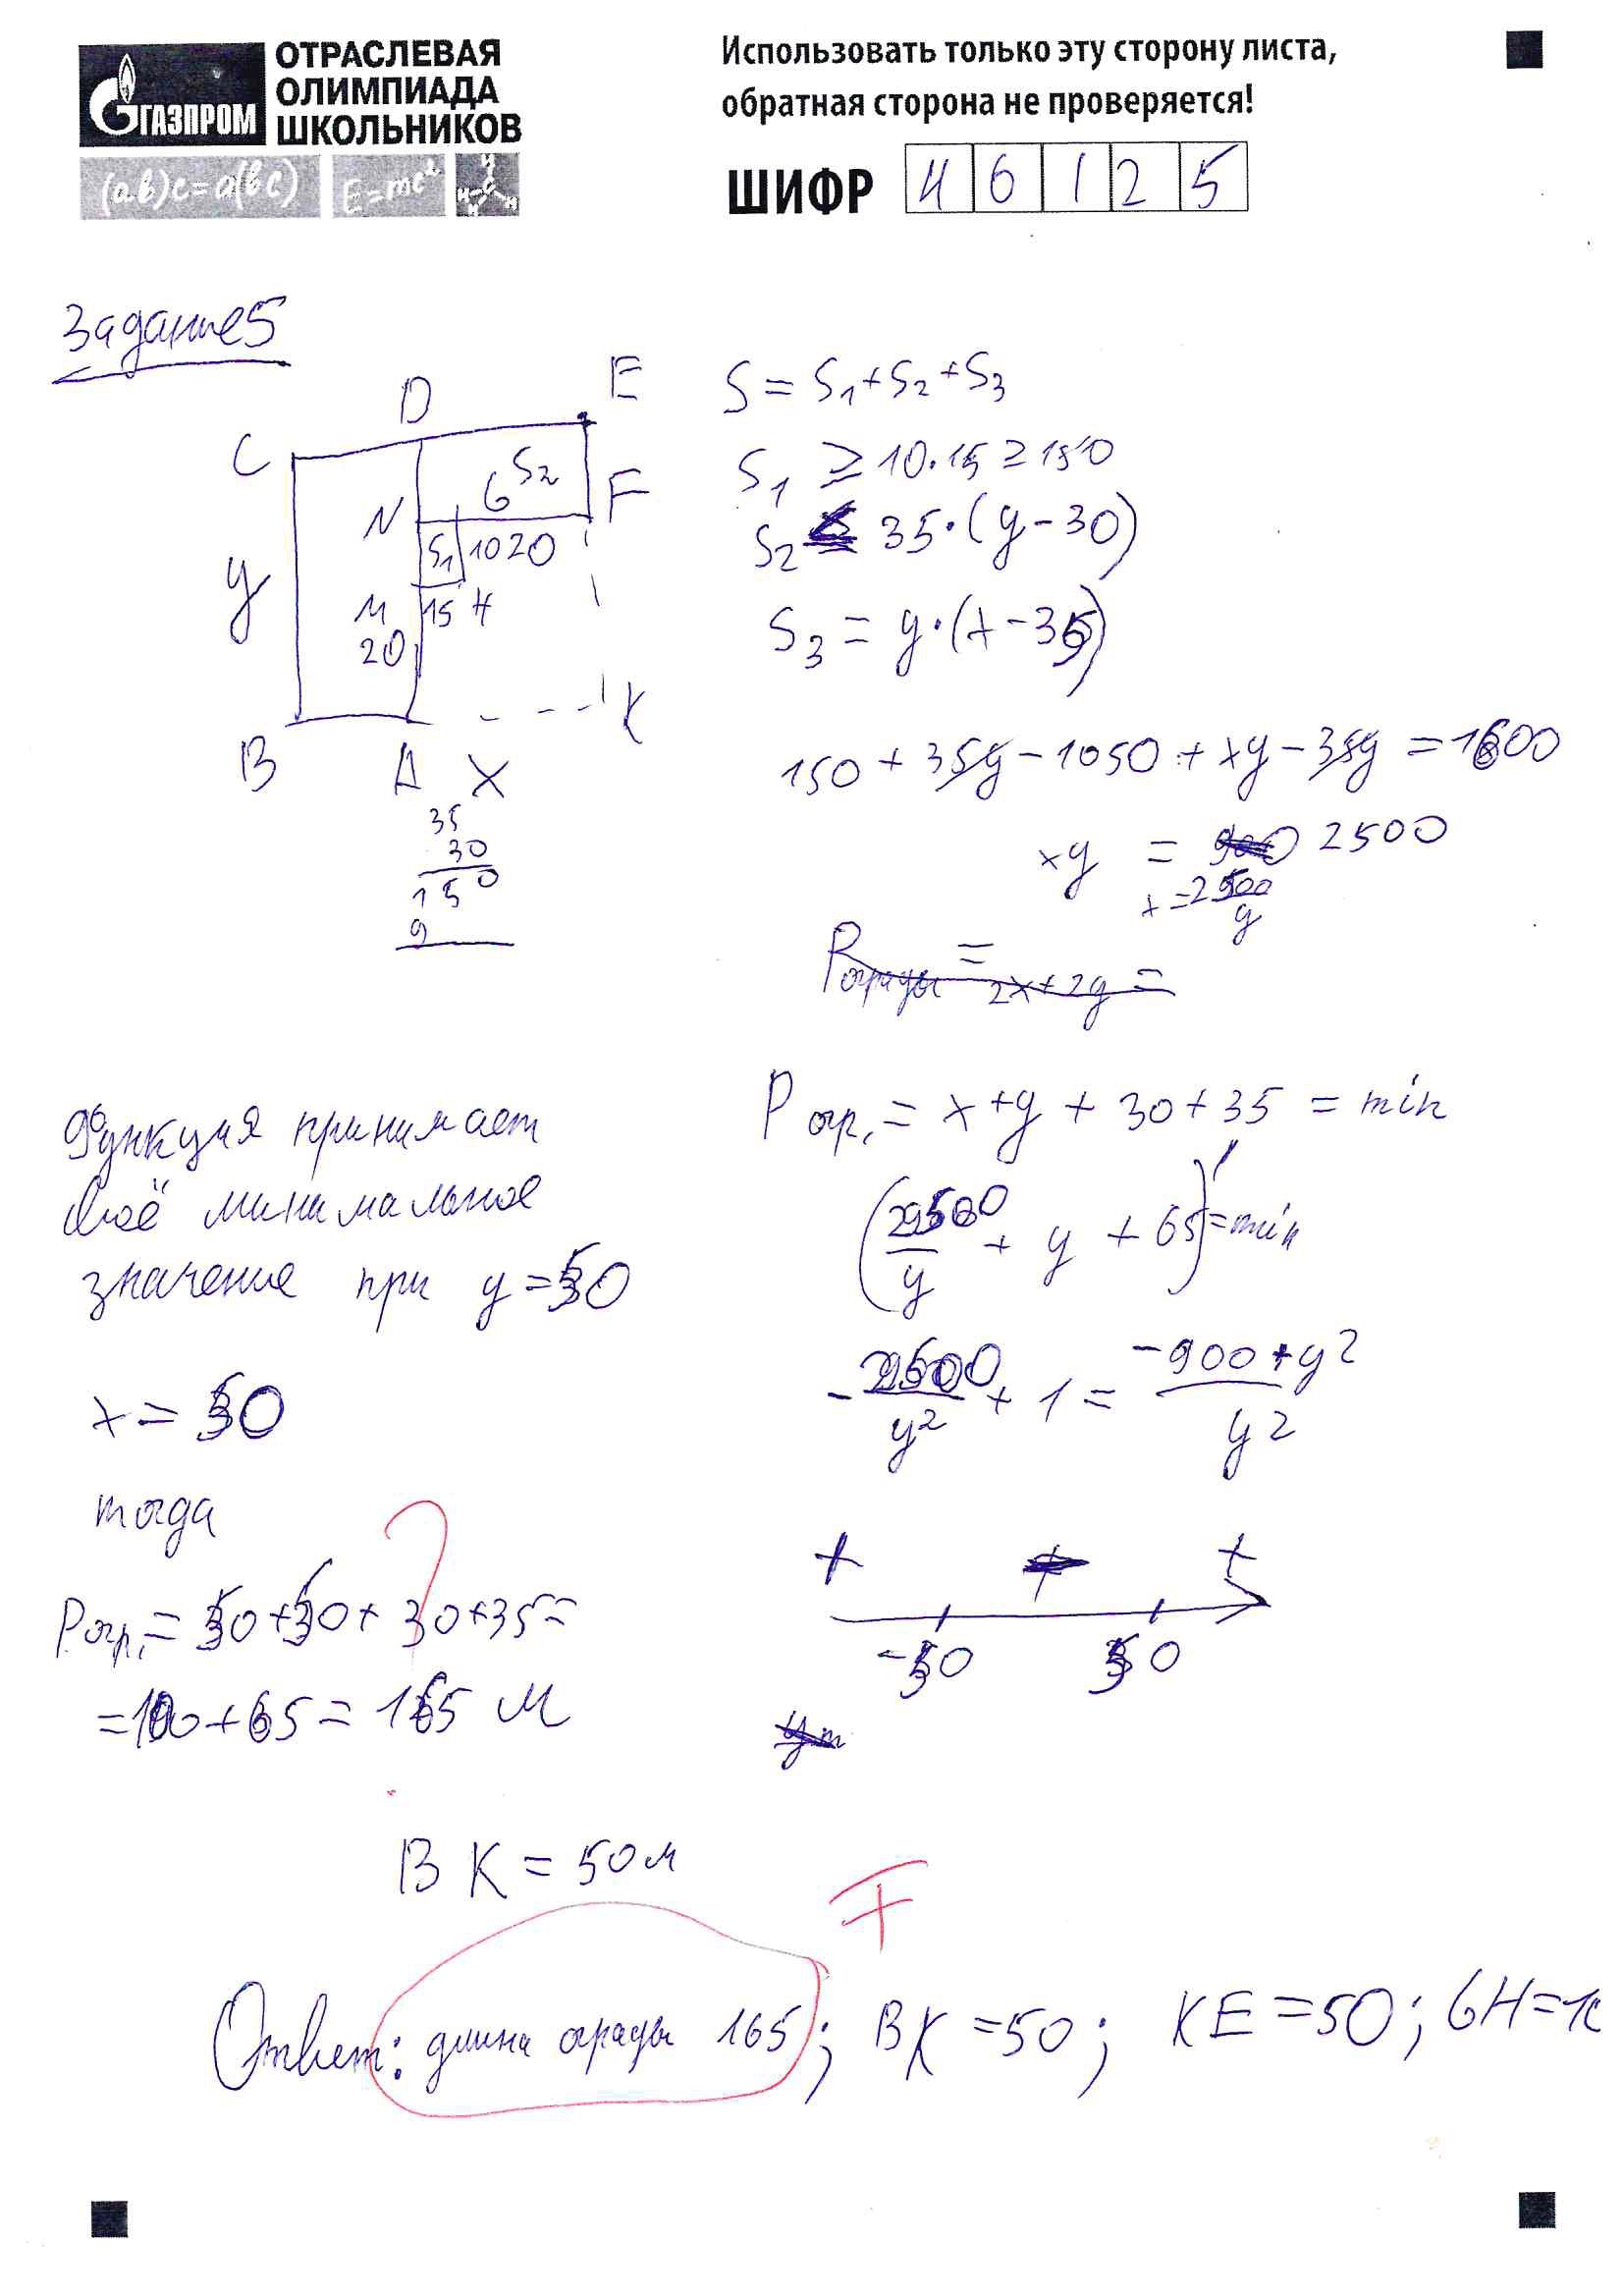 ГАЗПРОМ
ОТРАСЛЕВАЯ
ОЛИМПИАДА
ШКОЛЬНИКОВ
(a.b)c=a(bc)
E=mc²
Использовать только эту сторону листа,
обратная сторона не проверяется!
ШИФР 46125
Задание 5
C D E
N G S₂ F
y S₁ 10 20
M 15 H
20
B A X K
35
30
150
9
S = S₁+S₂+S₃
S₁ ≥ 10·15 ≥ 150
S₂ 35·(y-30)
S₃ = y·(x-35)
150+35y-1050+xy-35y=1600
xy = 2500
x=2500/y
Pограды = 2x+2y =
Pогр. = x+y+30+35 = min
(2500/y + y + 65)' = min
-2500/y² + 1 = (-900+y²)/y²
+ +
-50 50
Функция принимает
своё минимальное
значение при y=50
x=50
тогда
Pогр.=50+50+30+35=
=100+65=165 м
BK=50м
∓
Ответ: длина ограды 165; BK=50; KE=50; GH=10